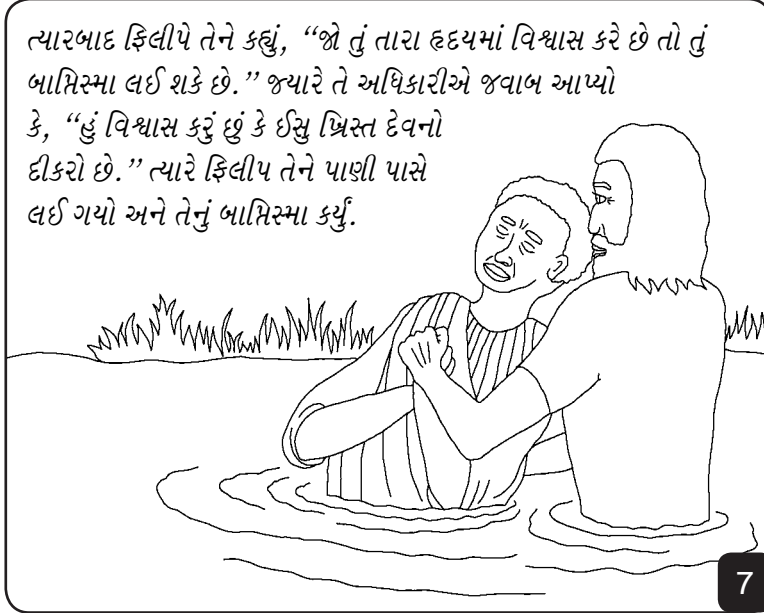 ત્યારબાદ ફિલીપે તેને કહ્યું, “જો તું તારા હૃદયમાં વિશ્વાસ કરે છે તો તું
બાપ્તિસ્મા લઈ શકે છે.” જ્યારે તે અધિકારીએ જવાબ આપ્યો
કે, “હું વિશ્વાસ કરું છું કે ઈસુ ખ્રિસ્ત દેવનો
દીકરો છે.” ત્યારે ફિલીપ તેને પાણી પાસે
લઈ ગયો અને તેનું બાપ્તિસ્મા કર્યું.
7